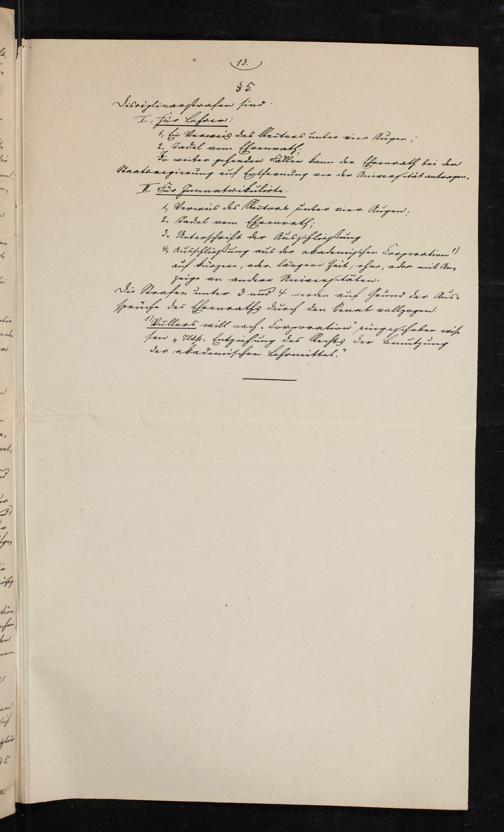 13.
§ 5.
Disciplinarstrafen sind:
I., Für Lehrer:
1, Ein Verweis des Rectors unter vier Augen;
2, Tadel vom Ehrenrath;
In weiter gehenden Fällen kann der Ehrenrath bei der
Staatsregierung auf Entfernung von der Universität antragen.
II. Für Immatriculirte.
1, Verweis des Rectors unter vier Augen;
2. Tadel vom Ehrenrath;
3. Unterschrift der Ausschließung
4, Ausschließung aus der akademischen Corporation 1)
auf kürzere, oder längere Zeit, ohne, oder mit An-
zeige an andere Universitäten.
Die Strafen unter 3 und 4 werden auf Grund der Aus-
sprüche des Ehrenraths durch den Senat vollzogen.
1) Vullers will nach "Corporation" eingeschoben wis-
sen "resp. Entziehung des Rechts der Benutzung
der akademischen Lehrmittel."